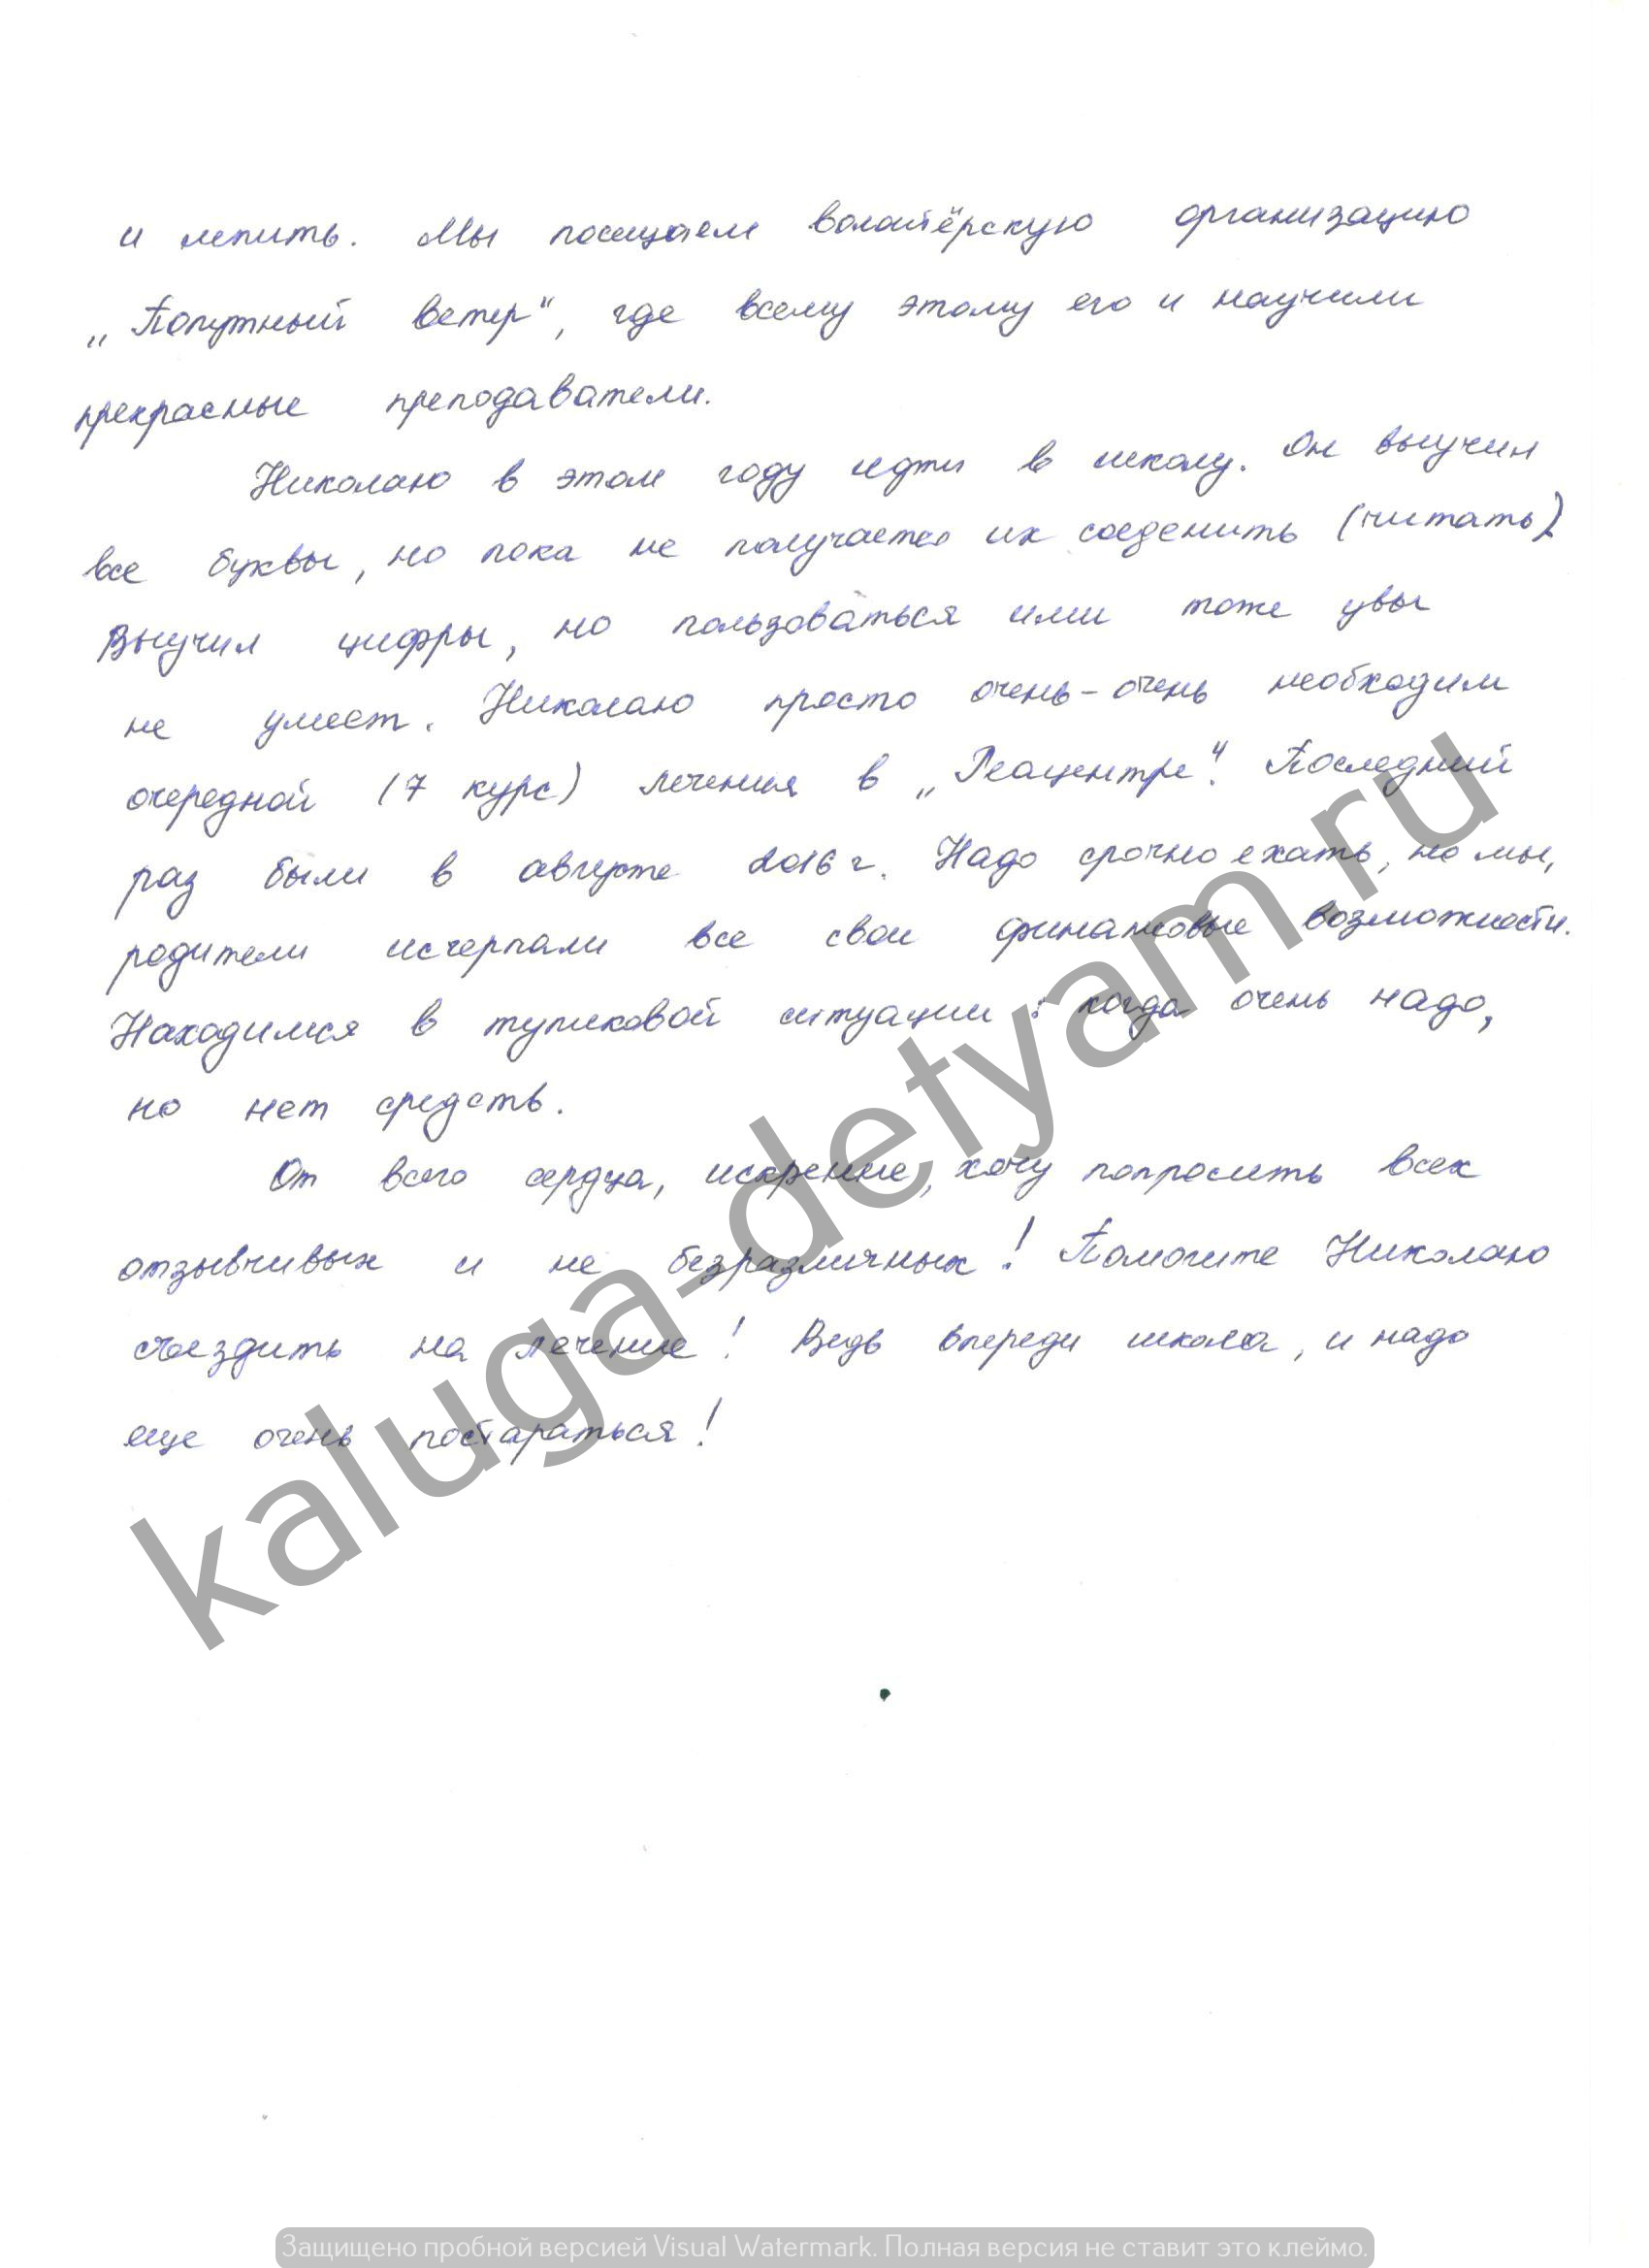 и лепить. Мы посещаем волотёрскую организацию
„Попутный ветер“, где всему этому его и научили
прекрасные преподаватели.
Николаю в этом году идти в школу. Он выучил
все буквы, но пока не получается их соеденить (читать).
Выучил цифры, но пользоваться ими тоже увы
не умеет. Николаю просто очень-очень необходим
очередной (7 курс) лечения в „Реацентре“. Последний
раз были в августе 2016 г. Надо срочно ехать, но мы,
родители исчерпали все свои финансовые возможности.
Находимся в тупиковой ситуации: когда очень надо,
но нет средств.
От всего сердца, искренне, хочу попросить всех
отзывчивых и не безразличных! Помогите Николаю
съездить на лечение! Ведь впереди школа, и надо
еще очень постараться!
kaluga-detyam.ru
Защищено пробной версией Visual Watermark. Полная версия не ставит это клеймо.